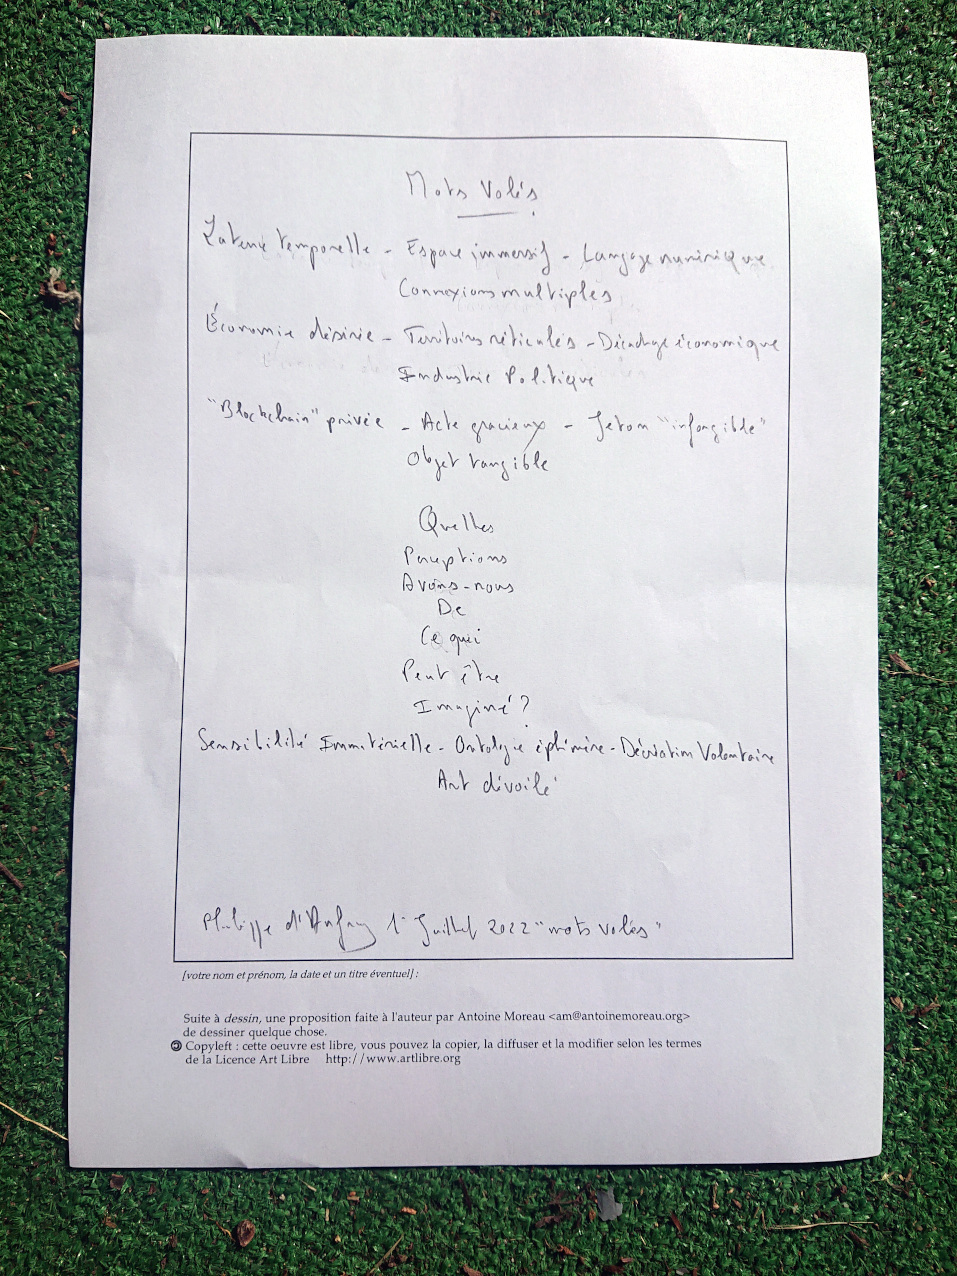 Mots volés
Latence temporelle - Espace immersif - Langage numérique
Connexions multiples
Économie désirée - Territoires réticulés - Décadage économique
Industrie Politique
"Blockchain" privée - Acte gracieux - Jeton "infongible"
Objet tangible
Quelles
Perceptions
Avons-nous
De
Ce qui
Peut être
Imaginé ?
Sensibilité Immatérielle - Ontologie éphémère - Déviation Volontaire
Art dévoilé
Philippe d' 1er Juillet 2022 "mots volés"
[votre nom et prénom, la date et un titre éventuel] :
Suite à dessin, une proposition faite à l'auteur par Antoine Moreau <am@antoinemoreau.org>
de dessiner quelque chose.
Copyleft : cette oeuvre est libre, vous pouvez la copier, la diffuser et la modifier selon les termes
de la Licence Art Libre http://www.artlibre.org